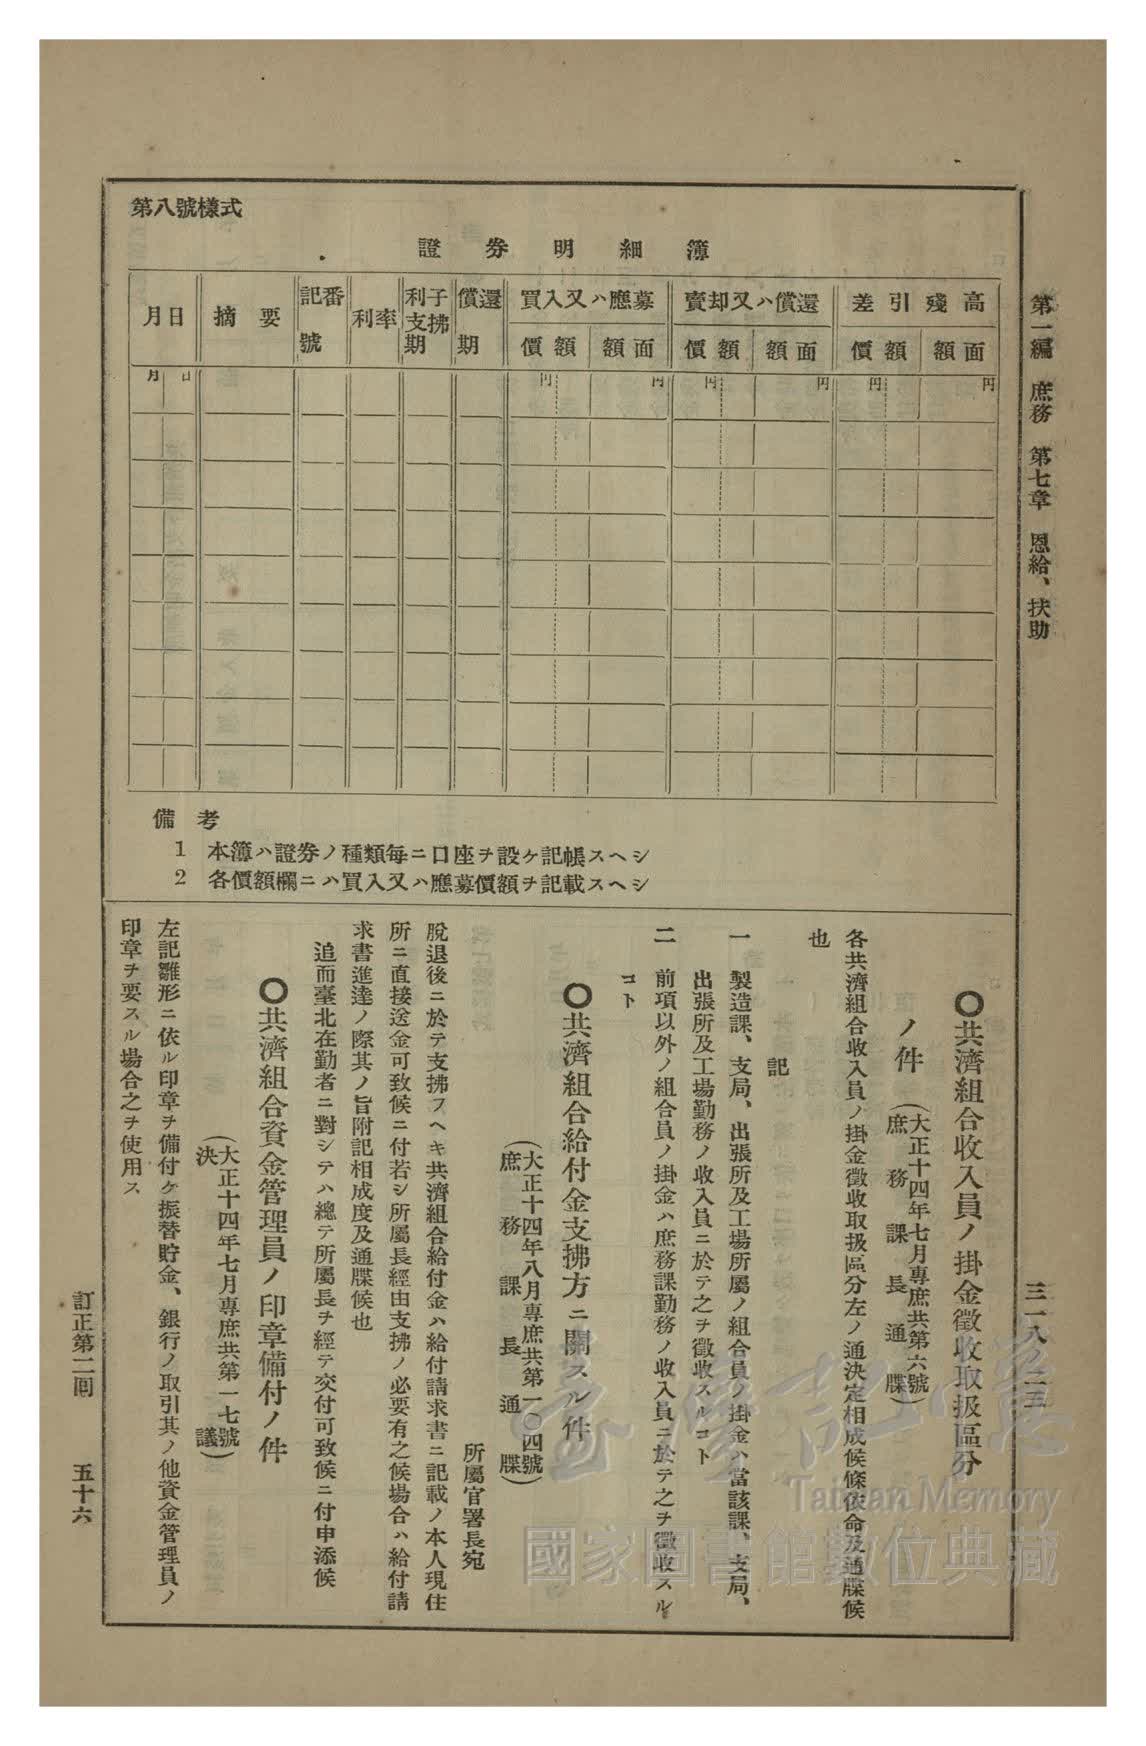 第一編　庶務　第七章　恩給、扶助
三一八ノ二三
第八號樣式
證券明細簿
月日
摘要
記番號
利率
利子支拂期
償還期
買入又ハ應募
賣却又ハ償還
差引殘高
價額
額面
價額
額面
價額
額面
月
日
円
円
円
円
円
円
備考
1　本簿ハ證券ノ種類每ニ口座ヲ設ケ記帳スヘシ
2　各價額欄ニハ買入又ハ應募價額ヲ記載スヘシ
〇共濟組合收入員ノ掛金徵收取扱區分
ノ件
(大正十四年七月專庶共第六號
庶務課長通牒)
各共濟組合收入員ノ掛金徵收取扱區分左ノ通決定相成候條依命及通牒候
也
記
一　製造課、支局、出張所及工場所屬ノ組合員ノ掛金ハ當該課、支局、
出張所及工場勤務ノ收入員ニ於テ之ヲ徵收スルコト
二　前項以外ノ組合員ノ掛金ハ庶務課勤務ノ收入員ニ於テ之ヲ徵收スル
コト
〇共濟組合給付金支拂方ニ關スル件
(大正十四年八月專庶共第一〇四號
庶務課長通牒)
所屬官署長宛
脫退後ニ於テ支拂フヘキ共濟組合給付金ハ給付請求書ニ記載ノ本人現住
所ニ直接送金可致候ニ付若シ所屬長經由支拂ノ必要有之候場合ハ給付請
求書進達ノ際其ノ旨附記相成度及通牒候也
追而臺北在勤者ニ對シテハ總テ所屬長ヲ經テ交付可致候ニ付申添候
〇共濟組合資金管理員ノ印章備付ノ件
(大正十四年七月專庶共第一七號
決議)
左記雛形ニ依ル印章ヲ備付ケ振替貯金、銀行ノ取引其ノ他資金管理員ノ
印章ヲ要スル場合之ヲ使用ス
訂正第二回　五十六
臺灣記憶
Taiwan Memory
國家圖書館數位典藏